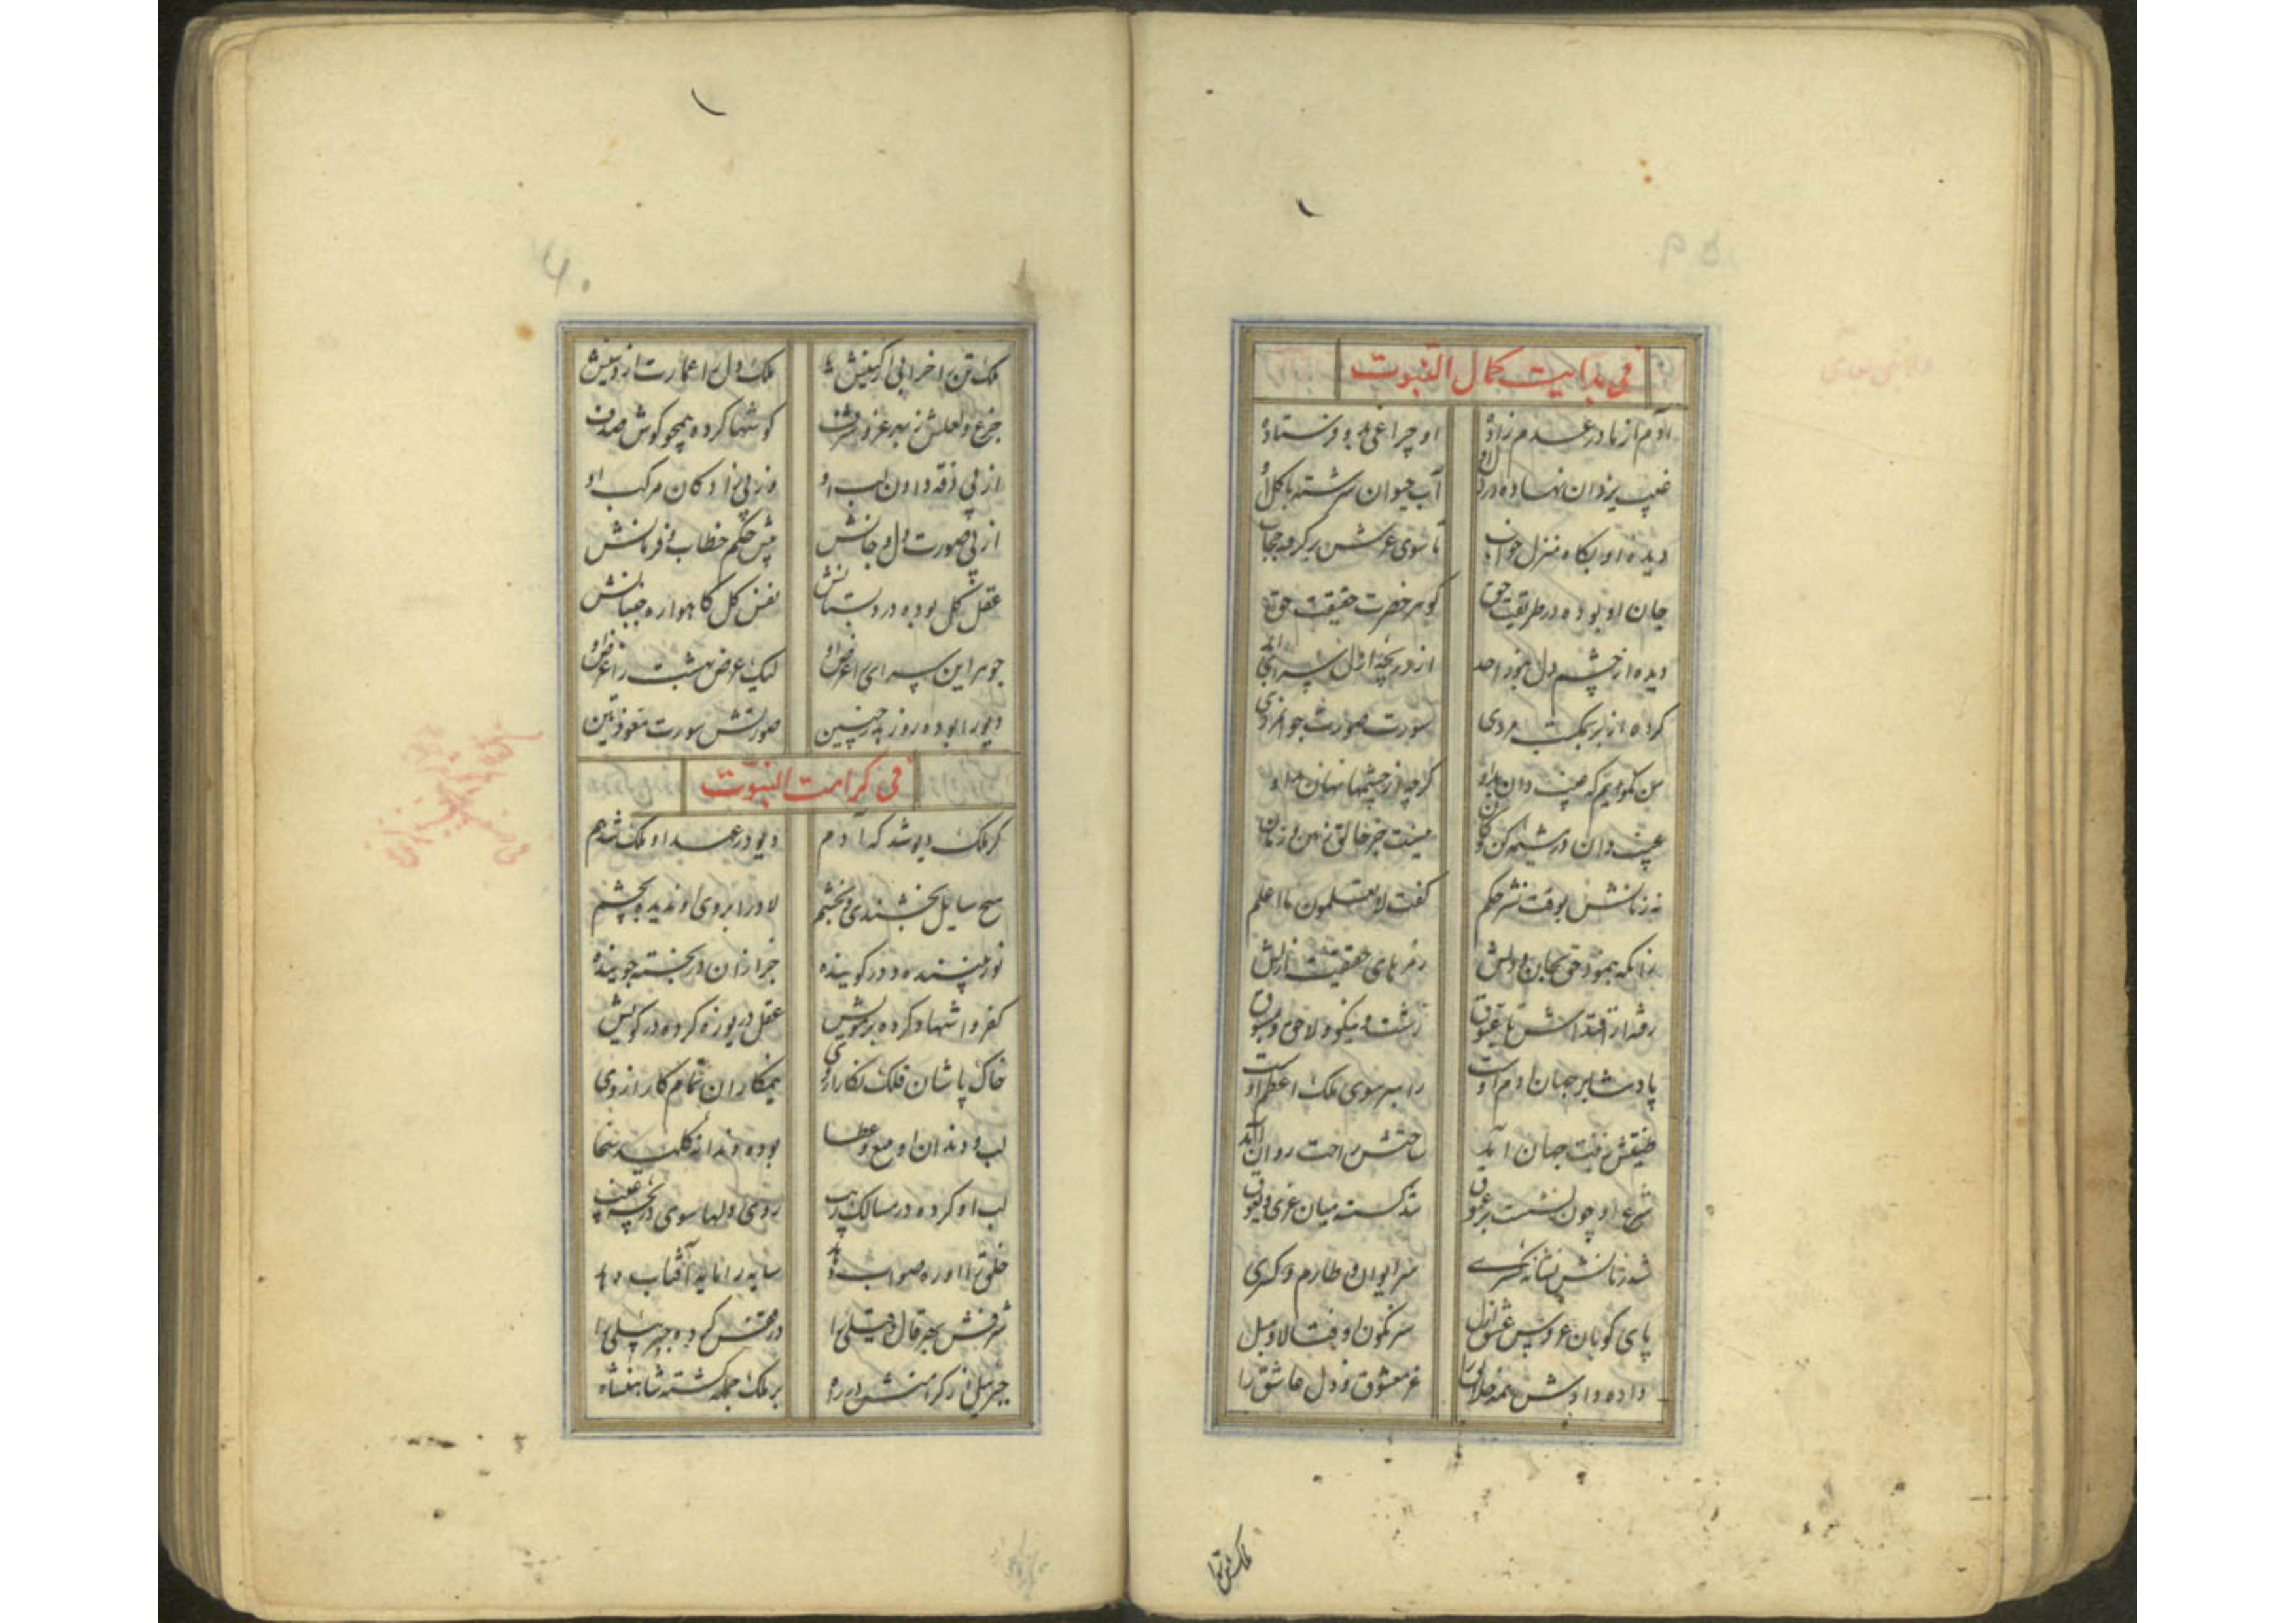 فی بدایت کمال النبوت
آدم از مادر عدم زاده او چراغی بدو فرستاده
غیب یزدان نهاده در دل او آب حیوان سرشته با گل او
دیده او بگاه منزل خواب تا سوی عرش بر گرفته حجاب
جان او بوده در طریقت حق گوهر حضرت حقیقت حق
دیده از چشم دل بنور احد از دریچه ازل سرای ابد
کرده از بر بمکتب مردی سورت صورت جوانمردی
من نگویم که غیب دان بد او گرچه از چشمها نهان بد او
غیب دان در مشیمه کن کان نیست جز خالق زمین و زمان
نه زبانش بوقت نشر حکم گفت لا تعلمون ما اعلم
زانکه بنمود حق بجان و دلش رمزهای حقیقت ازلش
رفته از اقتداش تا عیوق زشت و نیکو و لاحق و مسبوق
پادشا بر جهان آدم اوست راسبر سوی ملک اعظم اوست
ضیقش زفت جهان آمد ساحتش راحت روان آمد
شرع او چون نشست بر عیوق شد گسسته میان غزی و یعوق
شد زبانش نشانه کسری سر ایوان و طارم و کسری
پای کوبان عروس عشق ازل سرنگون اوفتد لات و هبل
داده دادش همه خلایق را غم معشوق و دل عاشق را
ملک تن را
ملک تن را خرابی از کینش ملک دل را عمارت از دینش
جزع و لعلش ز بهر عز و شرف گوشها کرده همچو گوش صدف
از پی زقه دادن لب او وز پی زاد کان مرکب او
از پی صورت دل و جانش پیش حکم خطاب و فرمانش
عقل کل بوده در دبستانش نفس کل گاهواره جنبانش
جوهر این سرای اعراض او لیک اعرض بهشت ز اعراض او
دیو را بوده روز بدر چنین صورتش سورت معوذتین
فی کرامت النبوت
گر ملک دیو شد گه آدم دیو در عهد او ملک شد هم
سیح سایل ببخشندی و بخشم لا در ابروی او ندید و بچشم
نور بیننده و در گوینده جز از آن در نجسته جوینده
کفر و اشهاد کرده بر مویش عقل دریوزه کرده در کویش
خاک پاشان فلک نگار از وی نیمکاران تمام کار از وی
لب و دندان او منع و عطا بوده دندانه کلید سخا
لب او کرده در مسالک ریب روی دلها سوی دریچه غیب
خلق را او ره صواب دهد سایه را مایه آفتاب دهد
شرفش بهر قال و قیلی را در قفس کرده جبرئیلی را
جبرئیل از کرامتش در راه بر ملک جمله گشته شاهنشاه